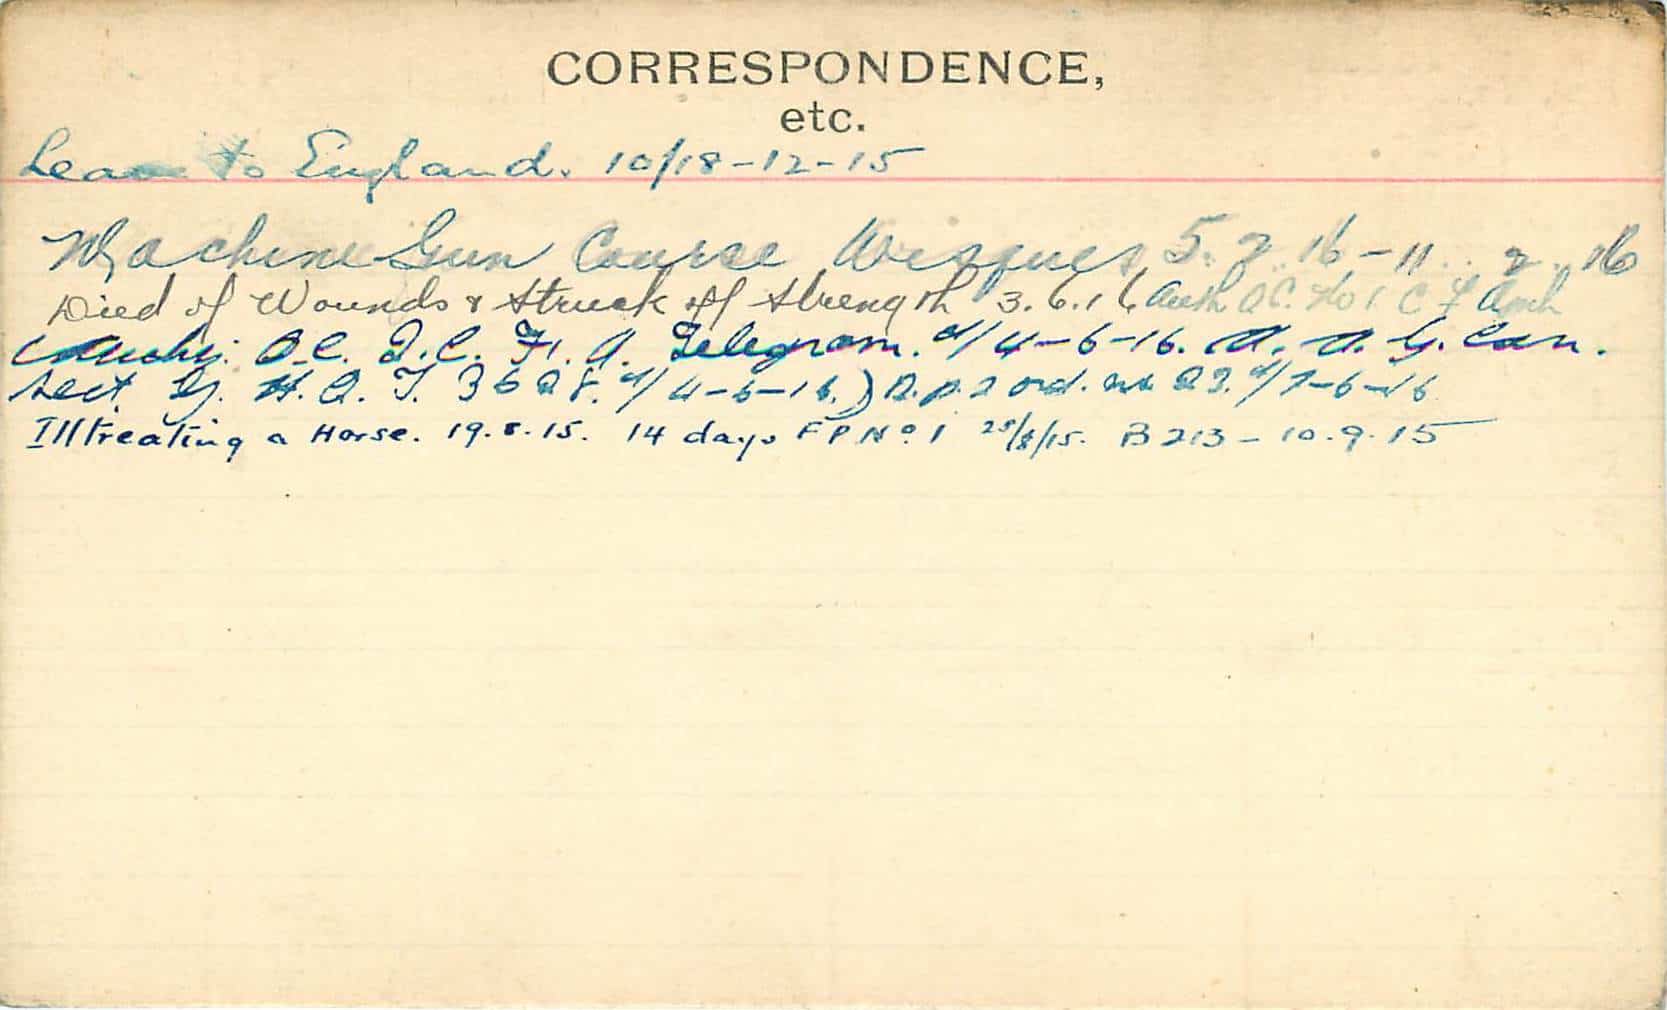 CORRESPONDENCE,
etc.
Leave to England. 10/18-12-15
Machine Gun Course Wisques 5. 2. 16 - 11. 2. 16
Died of Wounds & Struck off Strength 3.6.16 Auth O.C. No 1 C F Amb
O.C. I.C. F. A. Telegram. d/4-6-16. A. A. G. Can.
Sect. G. H. Q. T. 3628. d/4-6-16.) D.p. 2 ord. No 23. d/7-6-16
Illtreating a Horse. 19.8.15. 14 days F P No 1 25/8/15. B 213 - 10.9.15